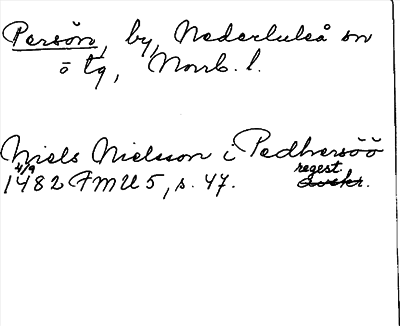 Persön, by, Nederluleå sn
ö tg, Norrb. l.
Niels Nielsson i Pedhersöö
4/9 regest.
1482 FMU 5, s. 47. avskr.